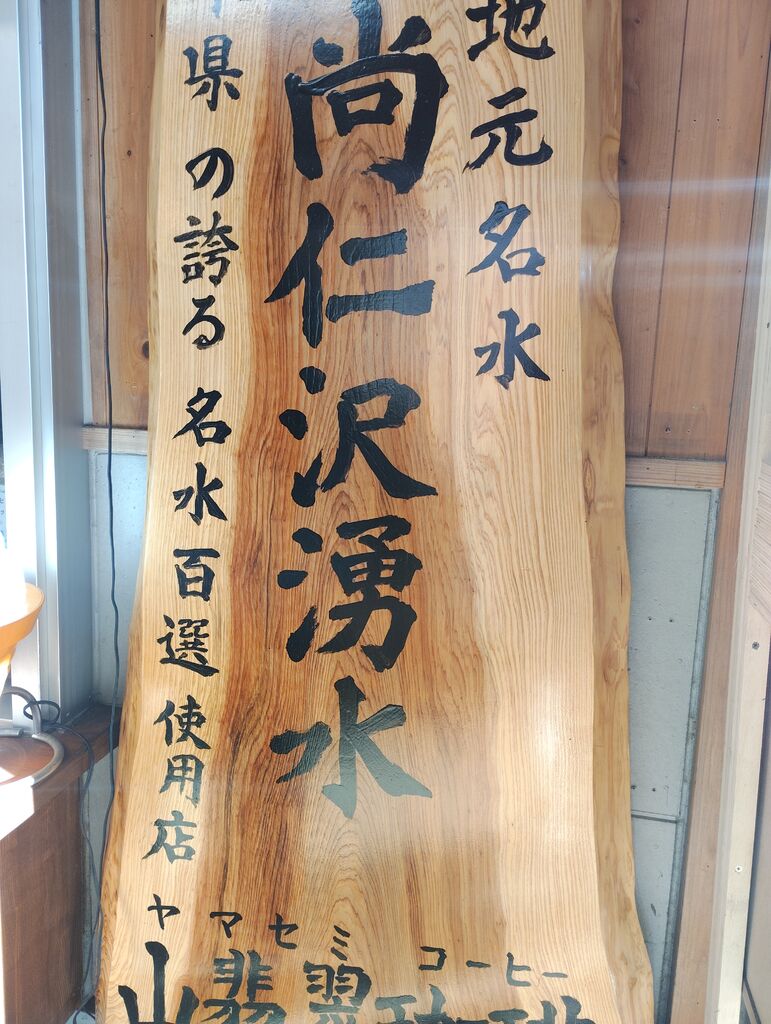 地元名水
尚仁沢湧水
県の誇る 名水百選 使用店
ヤマセミ コーヒー
山翡翠珈琲